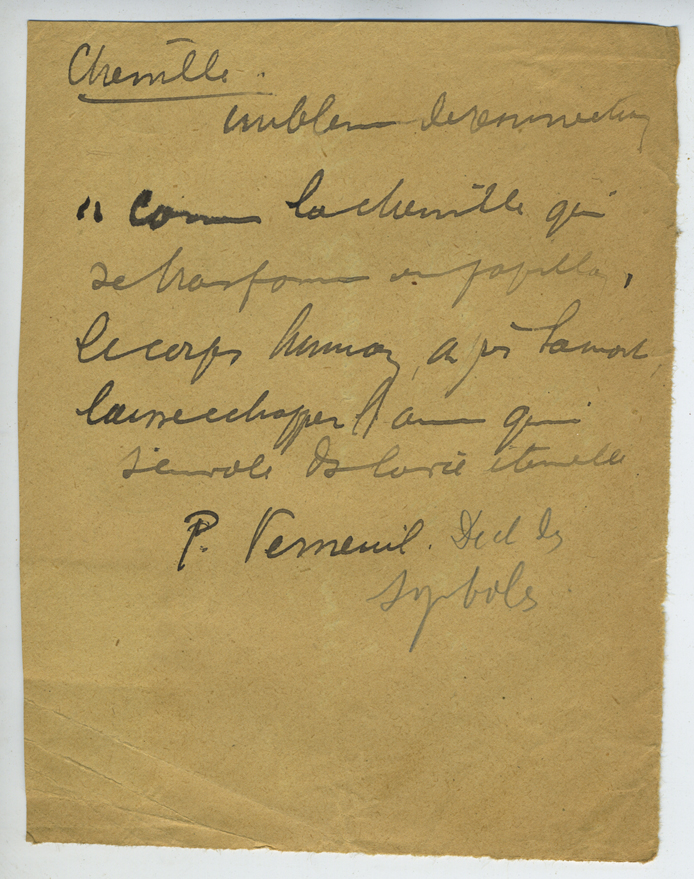 Chenille.
emblème de résurrection
" comme la chenille qui
se transforme en papillon,
le corps humain, après la mort,
laisse echapper l'ame qui
s'envole ds la vie éternelle
P. Verneuil. Dict des
symboles